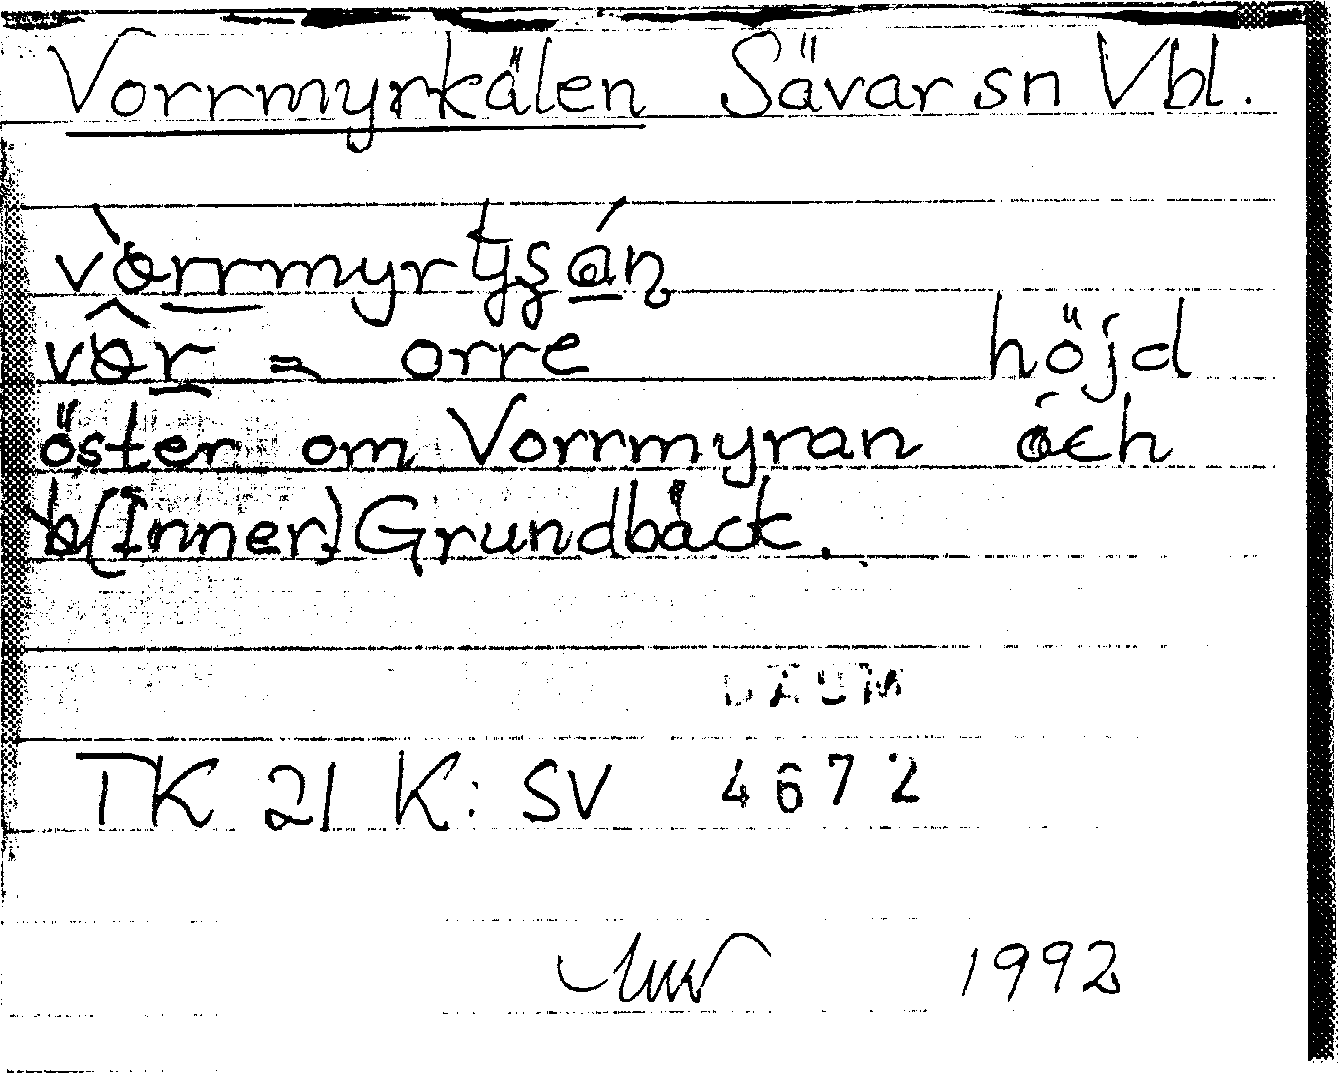 Vorrmyrkälen Sävar sn Vbl.
orre höjd
öster om Vorrmyran och
(Inner) Grundbäck.
DAUM
TK 21 K: SV 4672
1992